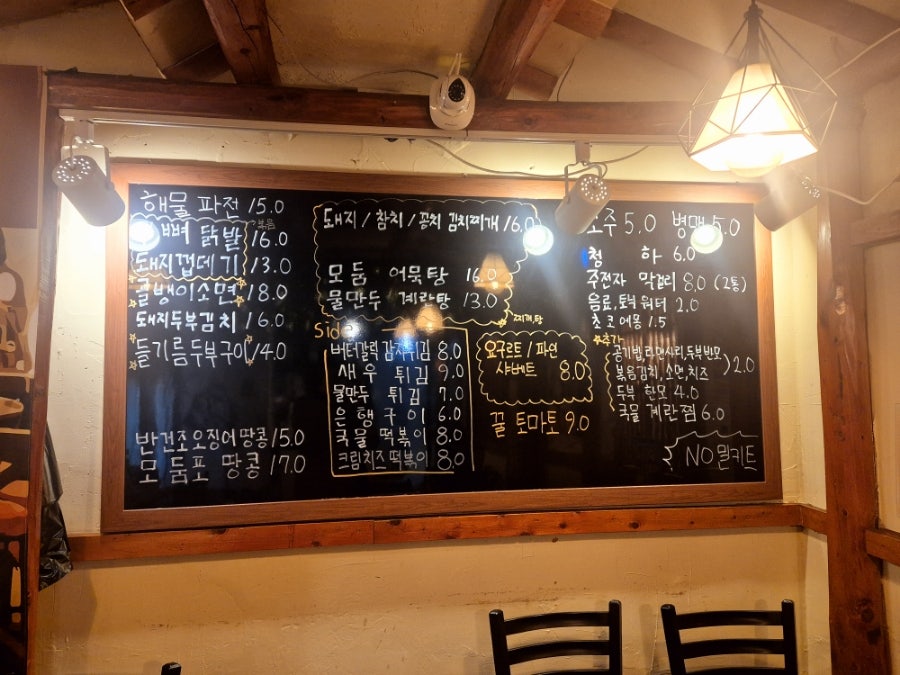 해물 파전 15.0
볶음
뼈 닭발 16.0
돼지껍데기 13.0
골뱅이소면 18.0
돼지두부김치 16.0
들기름두부구이 14.0
반건조오징어땅콩 15.0
모둠포 땅콩 17.0
돼지 / 참치 / 꽁치 김치찌개 16.0
모둠 어묵탕 16.0
물만두 계란탕 13.0
Side
버터갈릭 감자튀김 8.0
새우 튀김 9.0
물만두 튀김 7.0
은행구이 6.0
국물 떡볶이 8.0
크림치즈 떡볶이 8.0
요구르트 / 파인
샤베트 8.0
꿀 토마토 9.0
소주 5.0 병맥 5.0
청하 6.0
주전자 막걸리 8.0 (2통)
음료, 토닉워터 2.0
초코에몽 1.5
추가
공기밥, 라면사리, 두부반모
볶음김치, 소면, 치즈 2.0
두부 한모 4.0
국물 계란찜 6.0
NO 밀키트